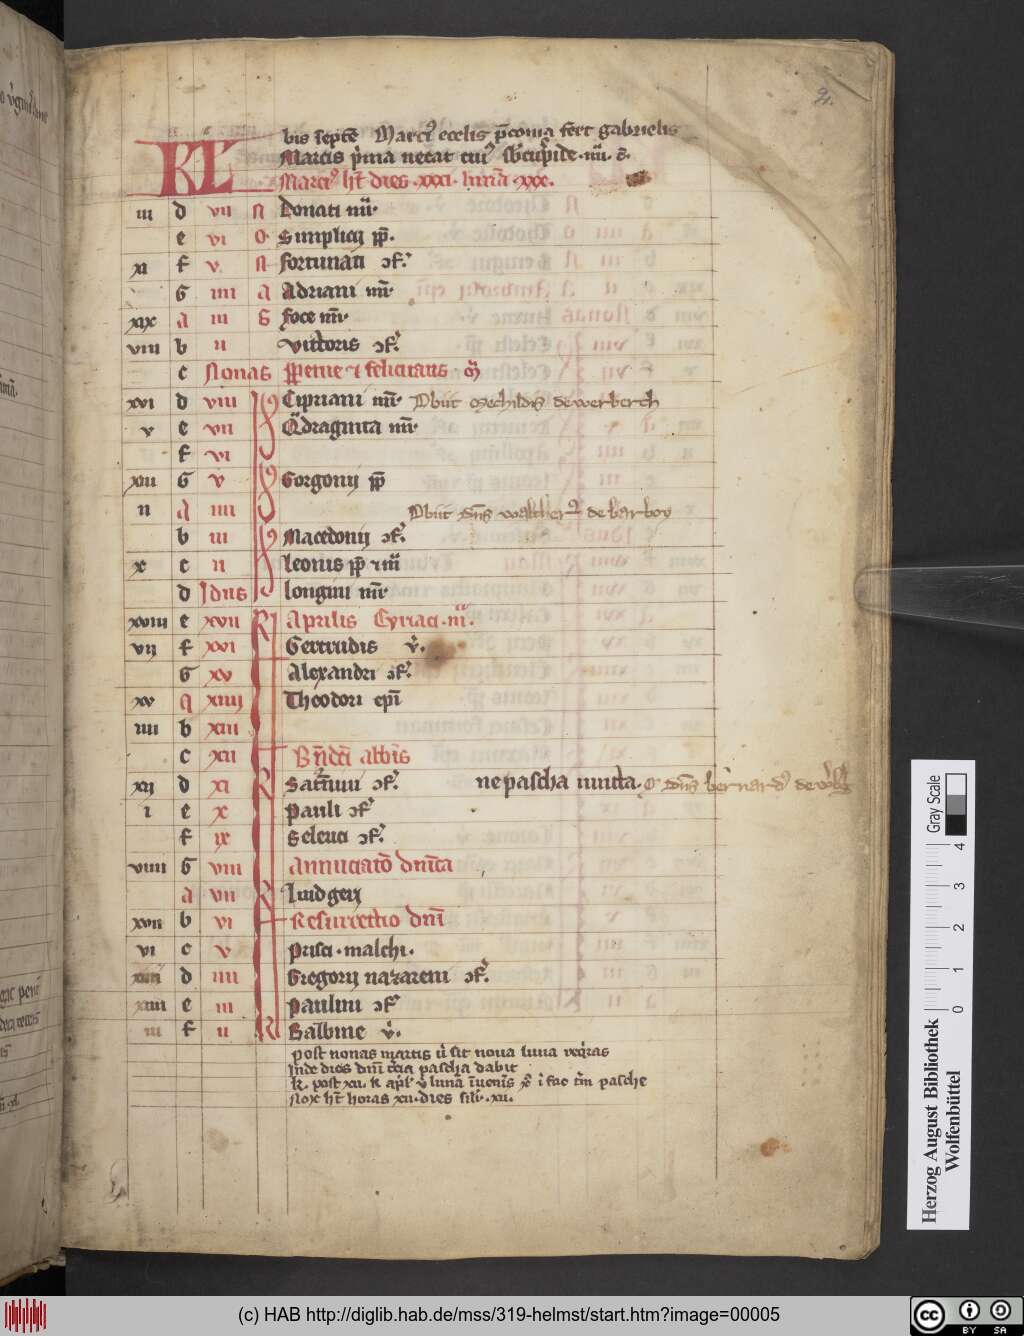 2.
bis septē Marci⁹ ecclīs p̄conia fert gabrielis
KL Marcis p̄ma necat
Marci⁹ ht̄ dies .xxxi. lunā .xxx.
iii d vii N Donati mr̄
e vi O Simplicij pp̄.
xi f v N fortunati ɔf.
G iiii A Adriani mr̄
xix A iii S foce mr̄
viii b ii Victoris ɔf.
c Nonas ppetue ⁊ felicitatis
xvi d viii Cipriani mr̄ Obiit mechildis de werberch
v e vii Qͣdraginta mr̄
f vi
xiii G v Gorgonij pp̄
ii A iiii Obiit dn̄s walther⁹ de barboy
b iii Macedonij ɔf.
x c ii leonis pp̄ ⁊ mr̄
d Idus longini mr̄
xviii e xvii Kl Aprilis Cyriaci .m.
vii f xvi Gertrudis v̄.
G xv Alexandri ɔf.
xv A xiiii Theodori ep̄i
iiii b xiii
c xii Bn̄dcī abb̄is
xii d xi Sat̄nini ɔf. ne pascha iuncta. O dn̄s bernard⁹
i e x pauli ɔf
f ix Seleuci ɔf.
viiii G viii Annūciatō dn̄ica
A vii ludgerj
xvii b vi Resurrectio dn̄i
vi c v prisci . malchi.
d iiii Gregorij nazareni ɔf.
xiiii e iii paulini ɔf
iii f ii Balbine v̄.
post nonas martis u͛ sit noua luna req̄ras
Inde dies dn̄i t͛cia pascha dabit
Nox ht̄ horas xii. dies sil͛r .xii.
Gray Scale
0 1 2 3 4
Herzog August Bibliothek
Wolfenbüttel
(c) HAB http://diglib.hab.de/mss/319-helmst/start.htm?image=00005
cc BY SA